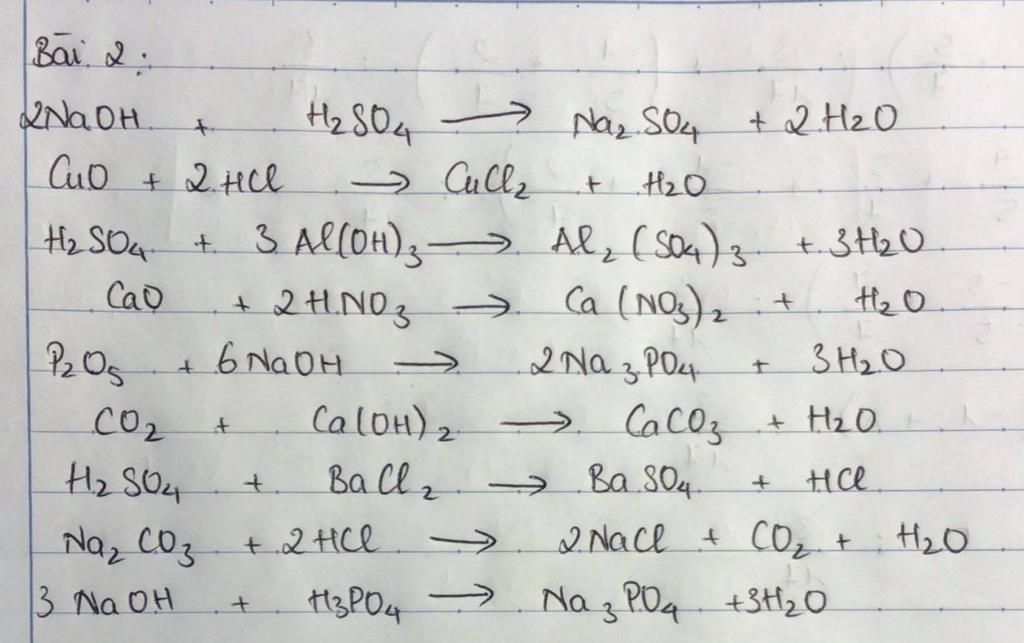 Bài 2:
2NaOH + H₂SO₄ → Na₂SO₄ + 2H₂O
CuO + 2HCl → CuCl₂ + H₂O
H₂SO₄ + 3Al(OH)₃ → Al₂(SO₄)₃ + 3H₂O
CaO + 2HNO₃ → Ca(NO₃)₂ + H₂O
P₂O₅ + 6NaOH → 2Na₃PO₄ + 3H₂O
CO₂ + Ca(OH)₂ → CaCO₃ + H₂O
H₂SO₄ + BaCl₂ → BaSO₄ + HCl
Na₂CO₃ + 2HCl → 2NaCl + CO₂ + H₂O
3NaOH + H₃PO₄ → Na₃PO₄ + 3H₂O